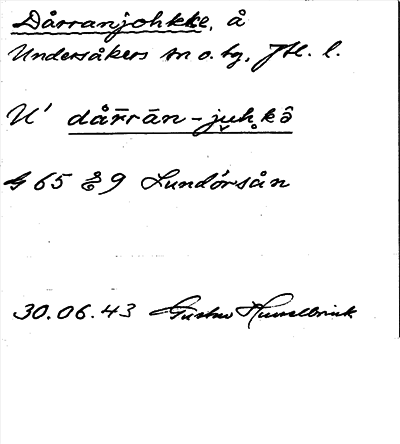 Dårranjohkke, å
Undersåkers sn o. tg, Jtl. l.
U' dår̄rān-juhkə̂
G 65 Ö 9 Lundörsån
30.06.43 Gustav Hasselbrink